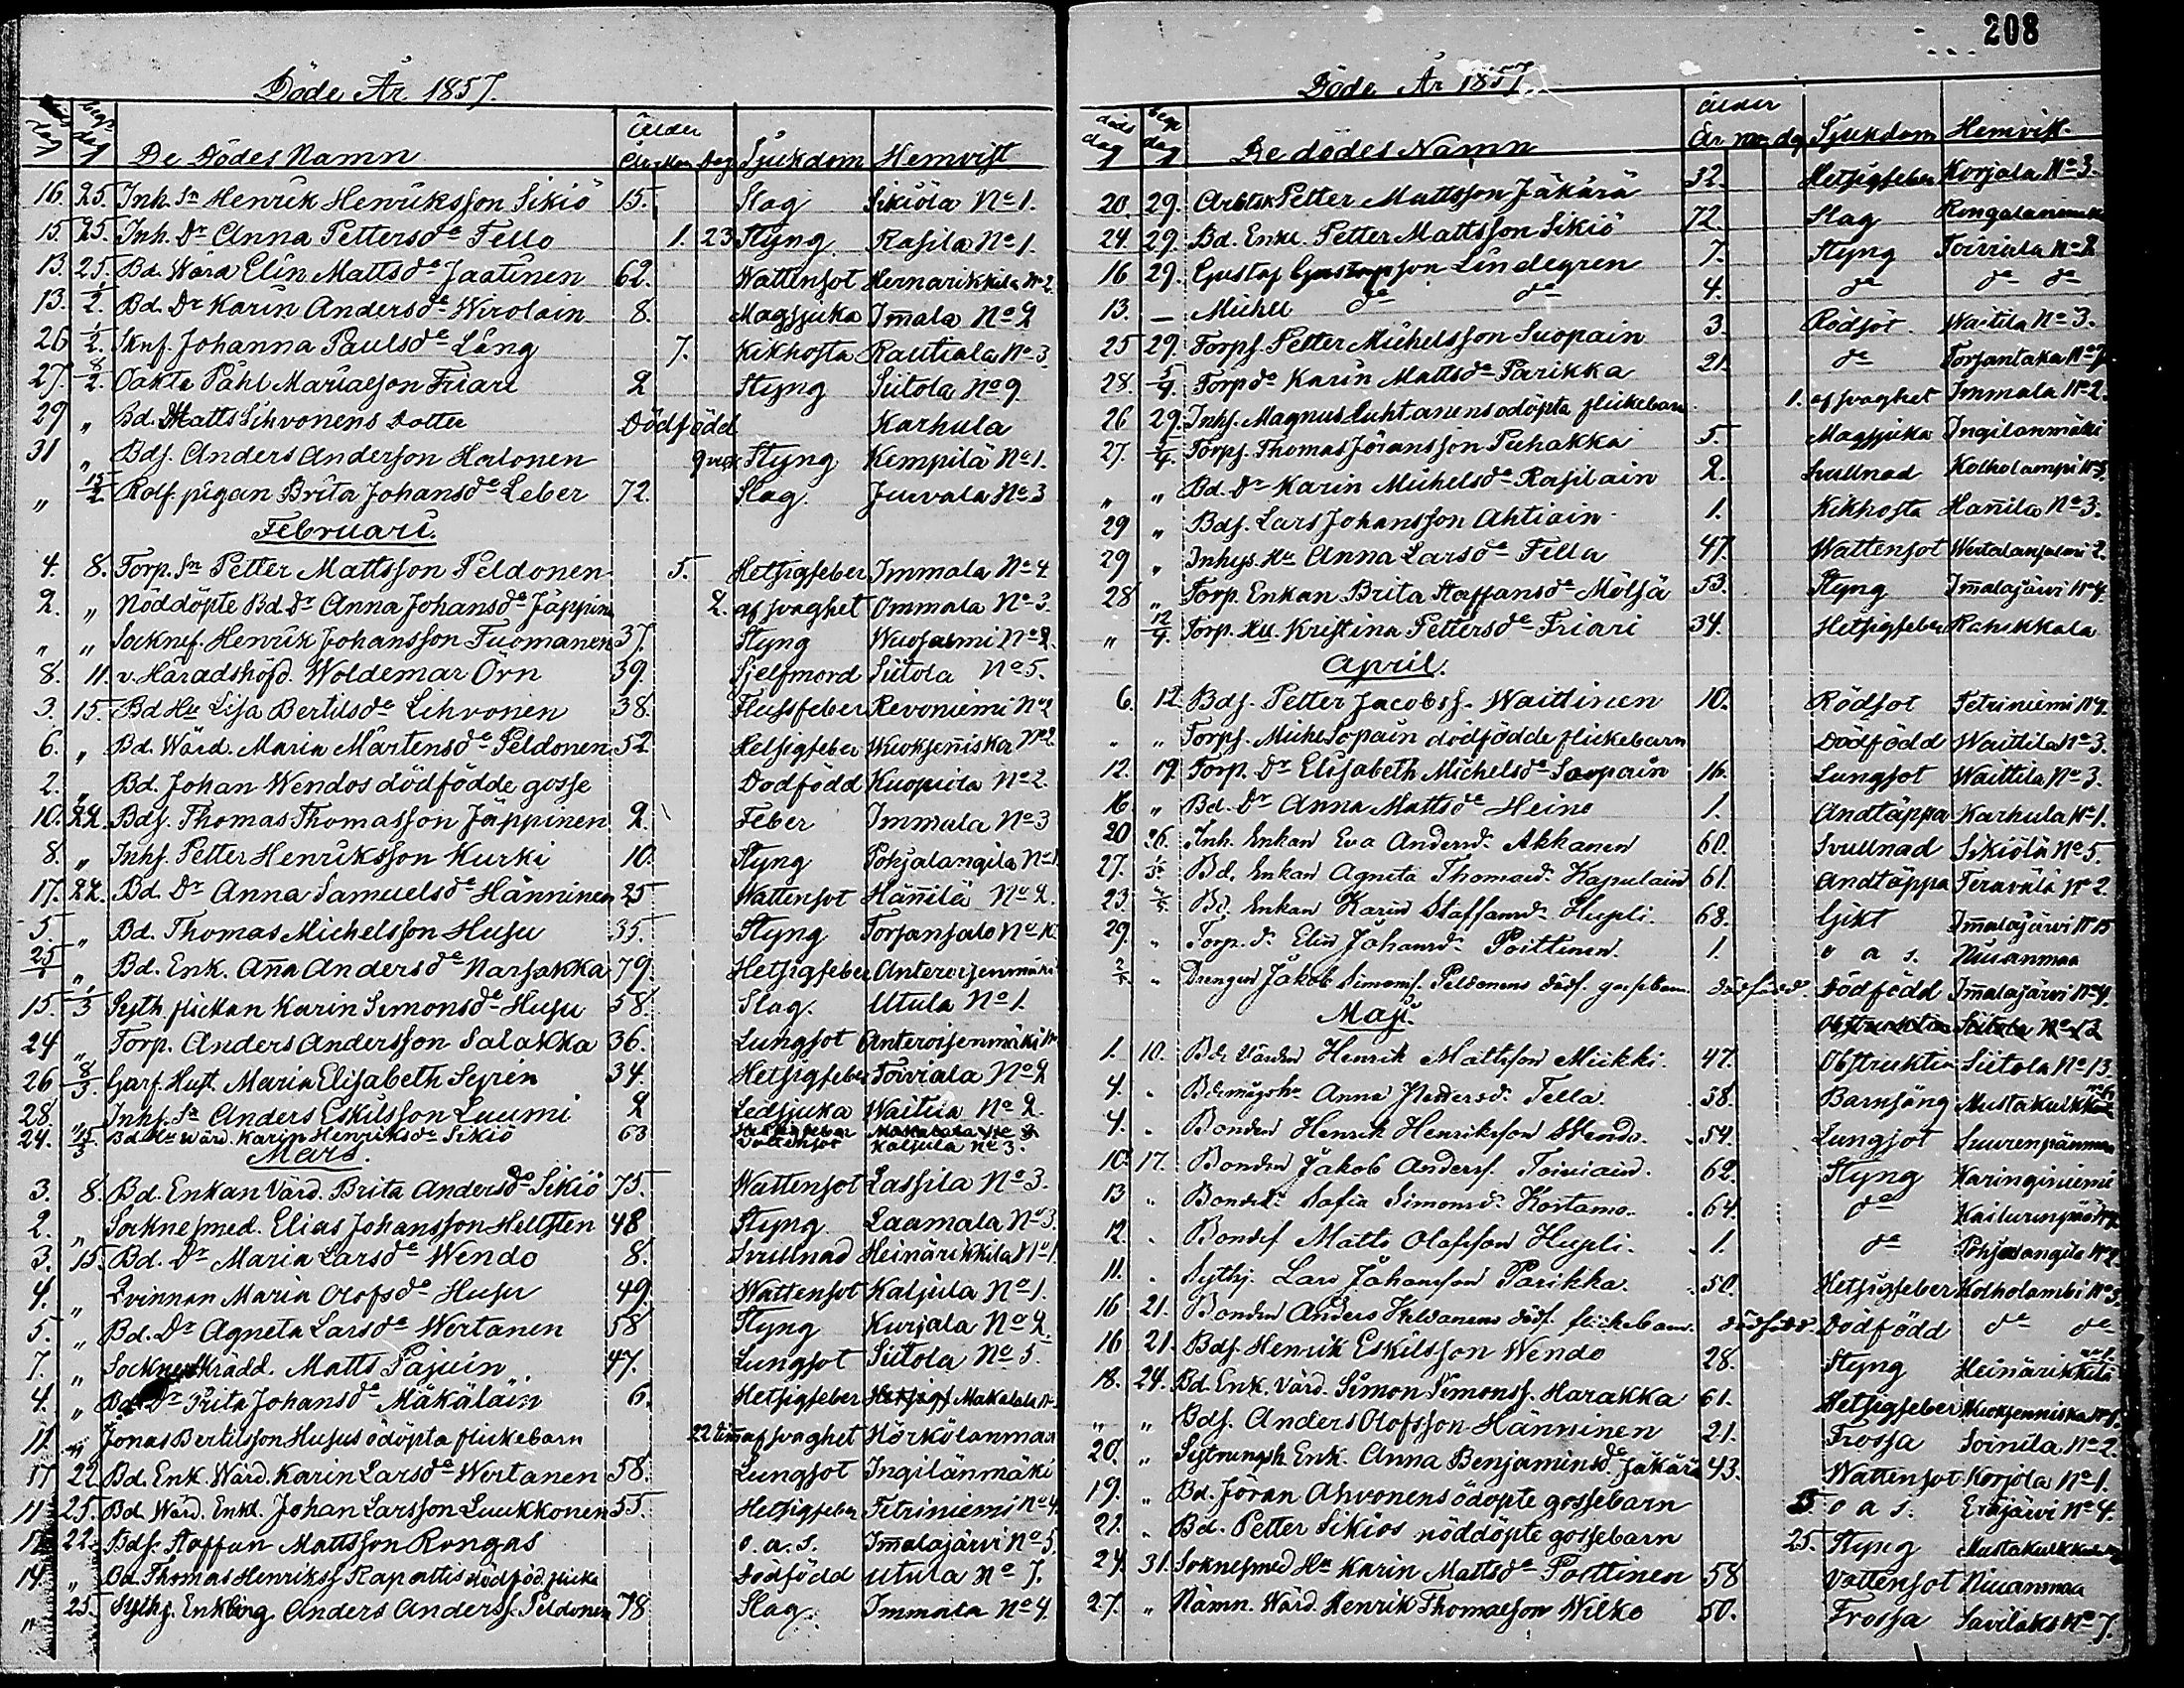 208
Döde År 1857.
döds dag begr dag De Dödes Namn Ålder År Mon Dag Sjukdom Hemvist
16. 25. Inh. Sn Henrik Henriksson Sikiö 15. Slag Sikiölä No 1.
15. 25. Inh. Dr Anna Pettersda Tello 1. 23 Styng Rasila No 1.
13. 25. Bd. Wärd Elin Mattsda Jaatinen 62. Wattensot Hernarikkila No 2.
13. 1/2. Bd. Dr Karin Andersda Wirolain 8. Magsjuka Im̄ala No 2
26 1/2. Sknf. Johanna Paulsda Lång 7. Kikhosta Rautiala No 3.
27. 8/2. Oakta Påhl Mariaeson Friari 2 Styng Siitola No 9
29 " Bd. Matts Sihvonens Dotter Dödfödd Karhula
31 " Bds. Anders Anderson Halonen 9 Styng Kempilä No 1.
" 15/2 Rotf. pigan Brita Johansda Leber 72. Slag. Juvala No 3
Februari.
4. 8. Torp. Sn Petter Mattsson Peldonen 5. Hetsigfeber Immala No 4.
2. " Nöddöpte Bd. Dr Anna Johansda Jäppinen 2. af svaghet Ommala No 3.
" " Socknef. Henrik Johansson Tuomanen 37. Styng Wuosalmi No 2.
8. 11. v. Häradshöfd. Woldemar Örn 39. Sjelfmord Siitola No 5.
3. 15. Bd Hu Lisa Bertilsda Lihvonen 38. Flussfeber Revoniemi No 2
6. " Bd. Wärd. Maria Mårtensda Peldonen 52. Hetsigfeber Wuoksenniska No 2.
2. " Bd. Johan Wendos dödfödde gosse Dödfödd Kuopula No 2.
10. 22. Bds. Thomas Thomasson Jäppinen 2. Feber Immala No 3
8. " Inhs. Petter Henriksson Kurki 10. Styng Pohjalangila No 1
17. 22. Bd. Dr Anna Samuelsda Hänninen 25 Wattensot Hänilä No 2.
5 " Bd. Thomas Michelsson Husu 35. Styng Torsansalo No 10.
25/1 " Bd. Enk. Anna Andersda Narsakka 79. Hetsigfeber Anteroisenmäki
15. 1/3 Syth. flickan Karin Simonsda Husu 58. Slag. Utula No 1.
24 " Torp. Anders Andersson Salakka 36. Lungsot Anteroisenmäki
26 8/3. Garf. Hust. Maria Elisabeth Syren 34. Hetsigfeber Toiviala No 2
28. " Inhs. Sn Anders Eskilsson Luumi 2 Ledsjuka Waitila No 2.
24. 15/3 Bd. Hu Wärd. Karin Henriksda Sikiö 63 Vattensot Kaljula No 3.
Mars.
3. 8. Bd. Enkan Värd. Brita Andersda Sikiö 75. Wattensot Lassila No 3.
2. " Socknesmed. Elias Johansson Hellsten 48 Styng Laamala No 3.
3. 15. Bd. Dr Maria Larsda Wendo 8. Svullnad Heinärikkila No 1.
4. " Qvinnan Maria Olofsda Husu 49. Wattensot Kaljula No 1.
5. " Bd. Dr Agneta Larsda Wertanen 58 Styng Kurjala No 2.
7. " Sockneskrädd. Matts Pajuin 47. Lungsot Siitola No 5.
4. " Bd. Dr Brita Johansda Mäkäläin 6. Hetsigfeber Makalala
11. " Jonas Bertilsson Husus ödöpta flickebarn 22 tim̄ af svaghet Hörkölanmaa
17 22 Bd. Enk. Wärd. Karin Larsda Wertanen 58. Lungsot Ingilänmäki
11 25. Bd. Wärd. Enkl. Johan Larsson Luukkonen 55. Hetsigfeber Tetriniemi No 4.
17 22. Bds. Staffan Mattsson Rongas o. a. s. Im̄alajärvi No 5.
14. " Bd. Thomas Henrikss Rapattis dödföd. flicka Dödfödd Utula No 7.
" 25 Syths. Enkling Anders Anderss. Peldonen 78 Slag. Immala No 4.
Döde År 1857.
döds dag begr dag De dödes Namn Ålder År mon dag Sjukdom Hemvist.
20. 29. Arbtsk Petter Mattsson Jäkärä 32. Hetsigfeber Korjala No 3.
24. 29. Bd. Enkl. Petter Mattsson Sikiö 72. Slag
16 29. Gustaf Gustafsson Lindegren 7. Styng Toiviala No 2
13. — Michel do do 4. do do do
25 29. Torps. Petter Michelsson Suopain 3. Rödsot Waitila No 3.
28. 5/4. Torp da Karin Mattsda Parikka 21. do Torsantaka
26 29. Inhs. Magnus Luhtanens odöpta flickebarn 1. af svaghet Immala No 2.
27. 5/4. Torps. Thomas Jöransson Puhakka 5. Magsjuka Ingilanmäki
" " Bd. Dr Karin Michelsda Rasilain 2. Svullnad Kolholampi No 3.
29 " Bds. Lars Johansson Ahtiain 1. Kikhosta Hanila No 3.
29 " Inhys. Hu Anna Larsda Tella 47. Wattensot
28 " Torp. Enkan Brita Staffansda Mölsä 53. Styng Im̄alajärvi No 4.
" 12/4. Torp. Hu Kristina Pettersda Friari 34. Hetsigfeber Rahikkala
April.
6. 12. Bds. Petter Jacobss. Waittinen 10. Rödsot Tetriniemi No 4.
" " Torps. Michel Sopain dödfödde flickebarn Dödfödd Waittila No 3.
12. 19. Torp. Dr Elisabeth Michelsda Soopain 16. Lungsot Waittila No 3.
16. " Bd. Dr Anna Mattsda Heino 1. Andtäppa Karhula No 1.
20 26. Inh. Enkan Eva Andersd. Akkanen 60. Svullnad Sikiölä No 5.
27. 1/5. Bd. Enkan Agneta Thomasd. Kapulain 61. Andtäppa Teravälä No 2.
23. Bd. Enkan Karin Staffansd. Hupli. 68. Gikt Im̄alajärvi No 15
29. " Torp. d. Elin Johansd. Poittinen. 1. o a s. Niuanmaa
2/5 " Drengen Jakob Simonss. Peldonens dödf. gossebarn. dödfödd. Dödfödd Im̄alajärvi No 4.
Maji.
Obstruktion Siitola No 12
1. 10. Bde Värden Henrik Mattsson Miikki. 47. Obstruktion Siitola No 13.
4. " Anna Pettersd. Tella. 38. Barnsäng Mustakulkkula
4. " Bonden Henrik Henriksson Wendo. 54. Lungsot Suurenpäänmaa
10. 17. Bonden Jakob Anderss. Toiviain. 62. Styng Karinginiemi
13 " Bonded. Sofia Simonsd. Kostamo. 64. do
12. " Bondes Matts Olofsson Hupli. 1. do Pohjalangila No 2.
11. " Sythj. Lars Johansson Parikka. 50. Hetsigfeber Kolholambi No 3.
16 21. Bonden Anders Peldanens dödf. flickebarn. dödfödd. Dödfödd do do
16 21. Bds. Henrik Eskilsson Wendo 28. Styng Heinärikkila
18. 24. Bd. Enk. Värd. Simon Simonss. Harakka 61. Hetsigfeber Wuoksenniska
" " Bds. Anders Olofsson Hänninen 21. Frossa Soinila No 2.
20. " Sytningsh. Enk. Anna Benjaminsda Jäkärä 43. Wattensot Korjola No 1.
19. " Bd. Jöran Ahvonens ödöpte gossebarn 5. o a s. Erkjärvi No 4.
21. " Bd. Petter Sikiös nöddöpte gossebarn 25. Styng Mustakulkkula
24. 31. Soknesmed Hu Karin Mattsda Poittinen 58 Vattensot Niuanmaa
27. " Nämn. Wärd. Henrik Thomasson Wilko 50. Frossa Savilaks No 7.